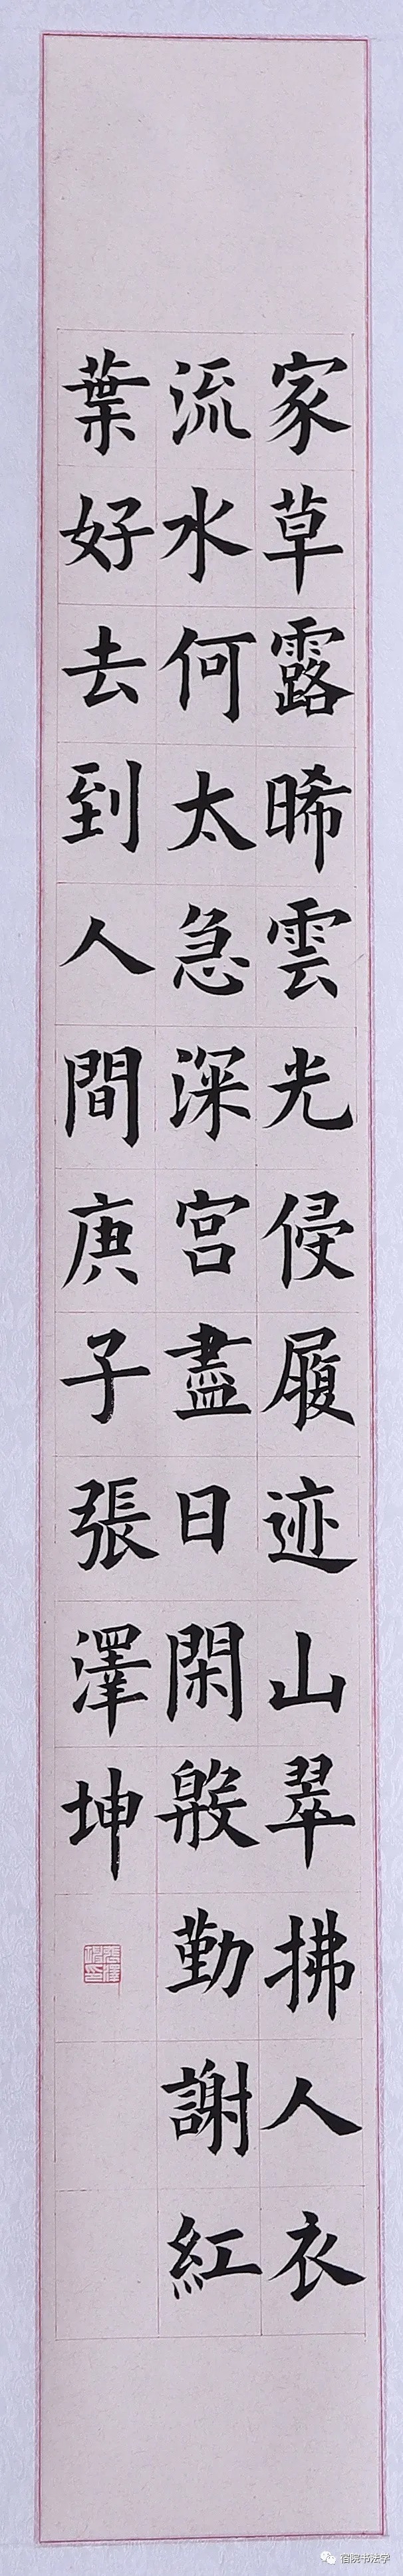 家草露晞雲光侵履迹山翠拂人衣
流水何太急深宮盡日閑殷勤謝紅
葉好去到人間庚子張澤坤
宿院书法学